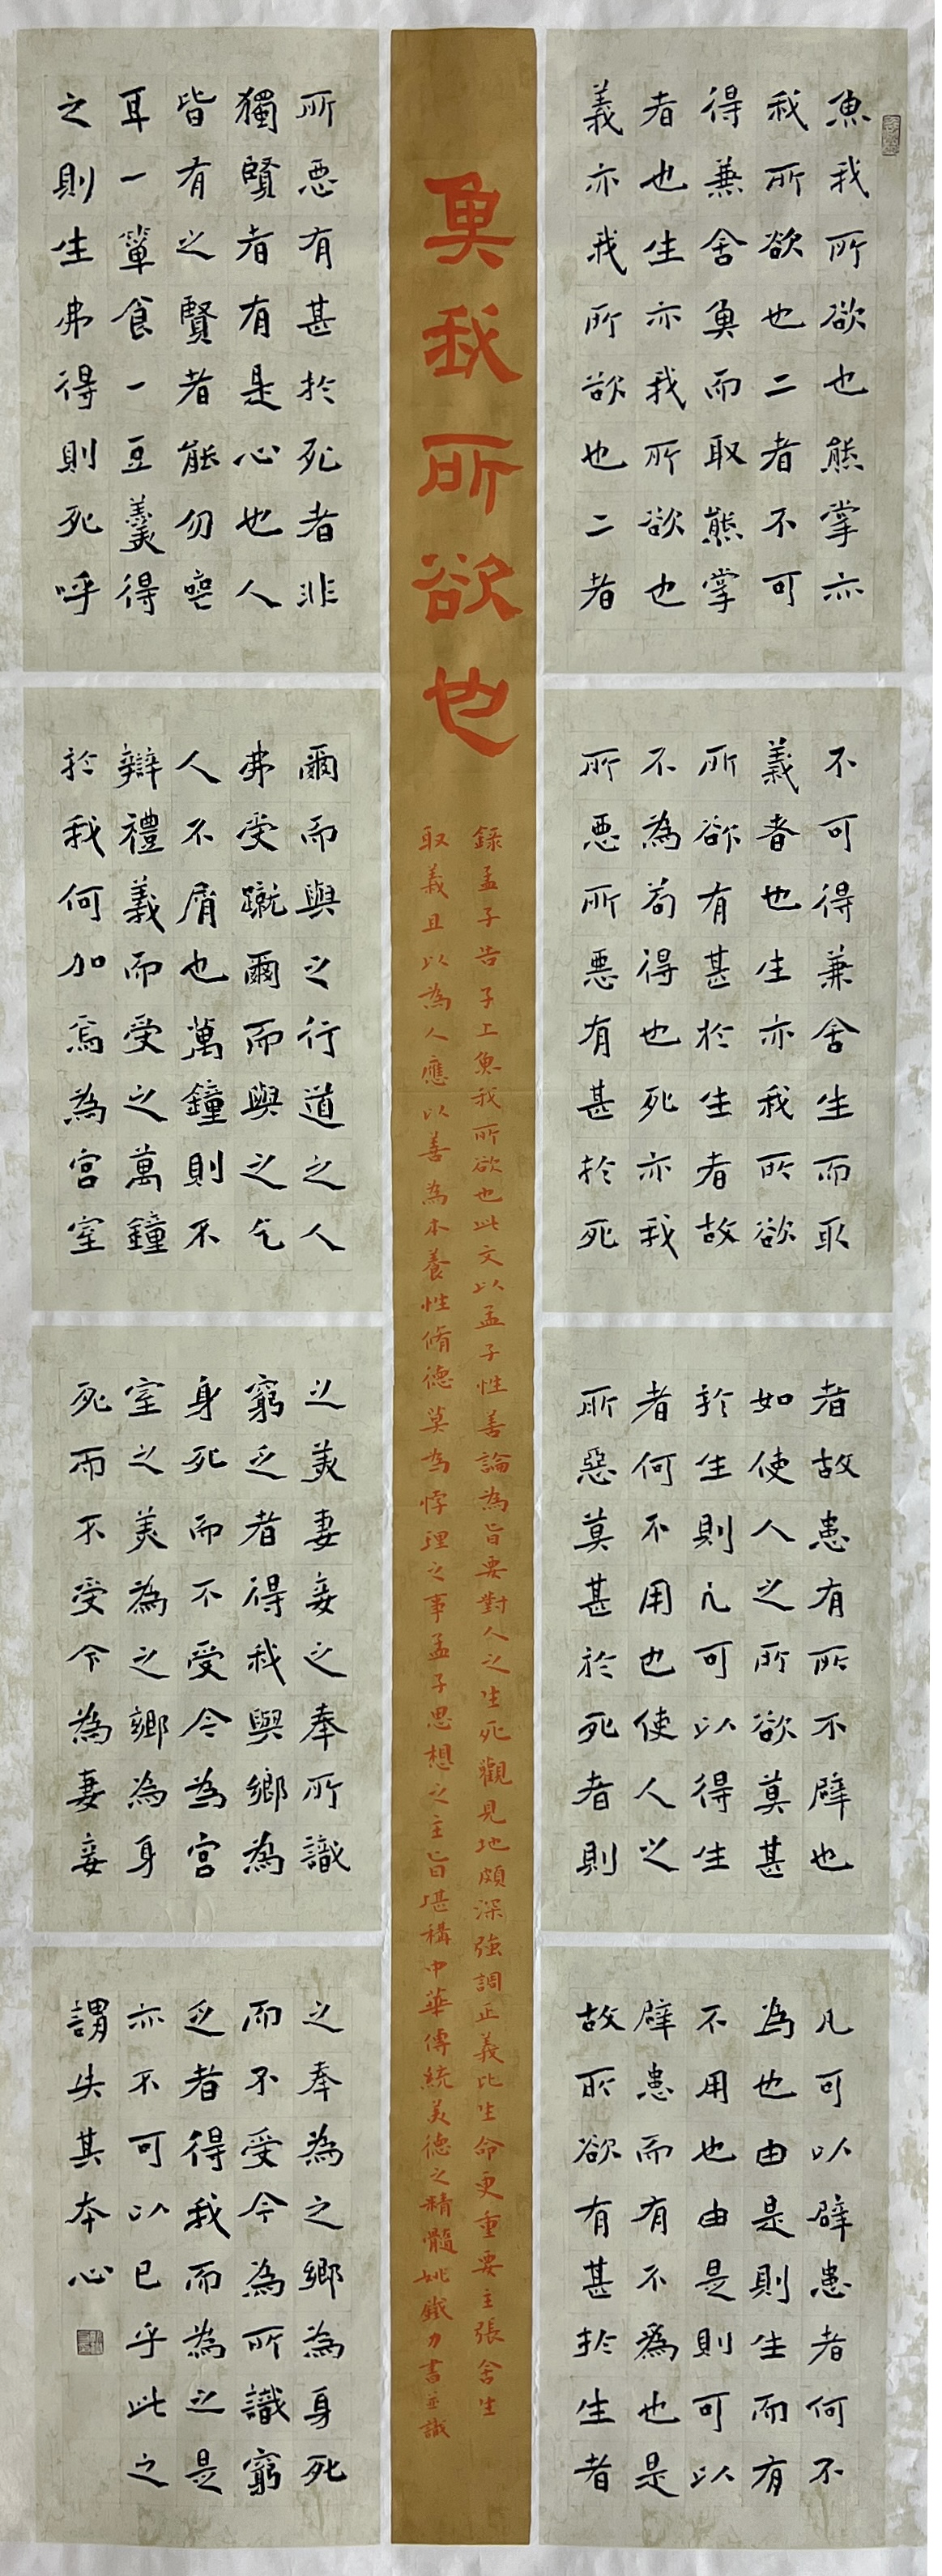 魚我所欲也熊掌亦
我所欲也二者不可
得兼舍魚而取熊掌
者也生亦我所欲也
義亦我所欲也二者
不可得兼舍生而取
義者也生亦我所欲
所欲有甚於生者故
不為苟得也死亦我
所惡所惡有甚於死
者故患有所不辟也
如使人之所欲莫甚
於生則凡可以得生
者何不用也使人之
所惡莫甚於死者則
凡可以辟患者何不
為也由是則生而有
不用也由是則可以
辟患而有不為也是
故所欲有甚於生者
魚我所欲也
錄孟子告子上魚我所欲也此文以孟子性善論為旨要對人之生死觀見地頗深強調正義比生命更重要主張舍生
取義且以為人應以善為本養性脩德莫為悖理之事孟子思想之主旨堪稱中華傳統美德之精髓姚鐵力書並識
所惡有甚於死者非
獨賢者有是心也人
皆有之賢者能勿喪
耳一簞食一豆羹得
之則生弗得則死呼
爾而與之行道之人
弗受蹴爾而與之乞
人不屑也萬鐘則不
辯禮義而受之萬鐘
於我何加焉為宮室
之美妻妾之奉所識
窮乏者得我與鄉為
身死而不受今為宮
室之美為之鄉為身
死而不受今為妻妾
之奉為之鄉為身死
而不受今為所識窮
乏者得我而為之是
亦不可以已乎此之
謂失其本心